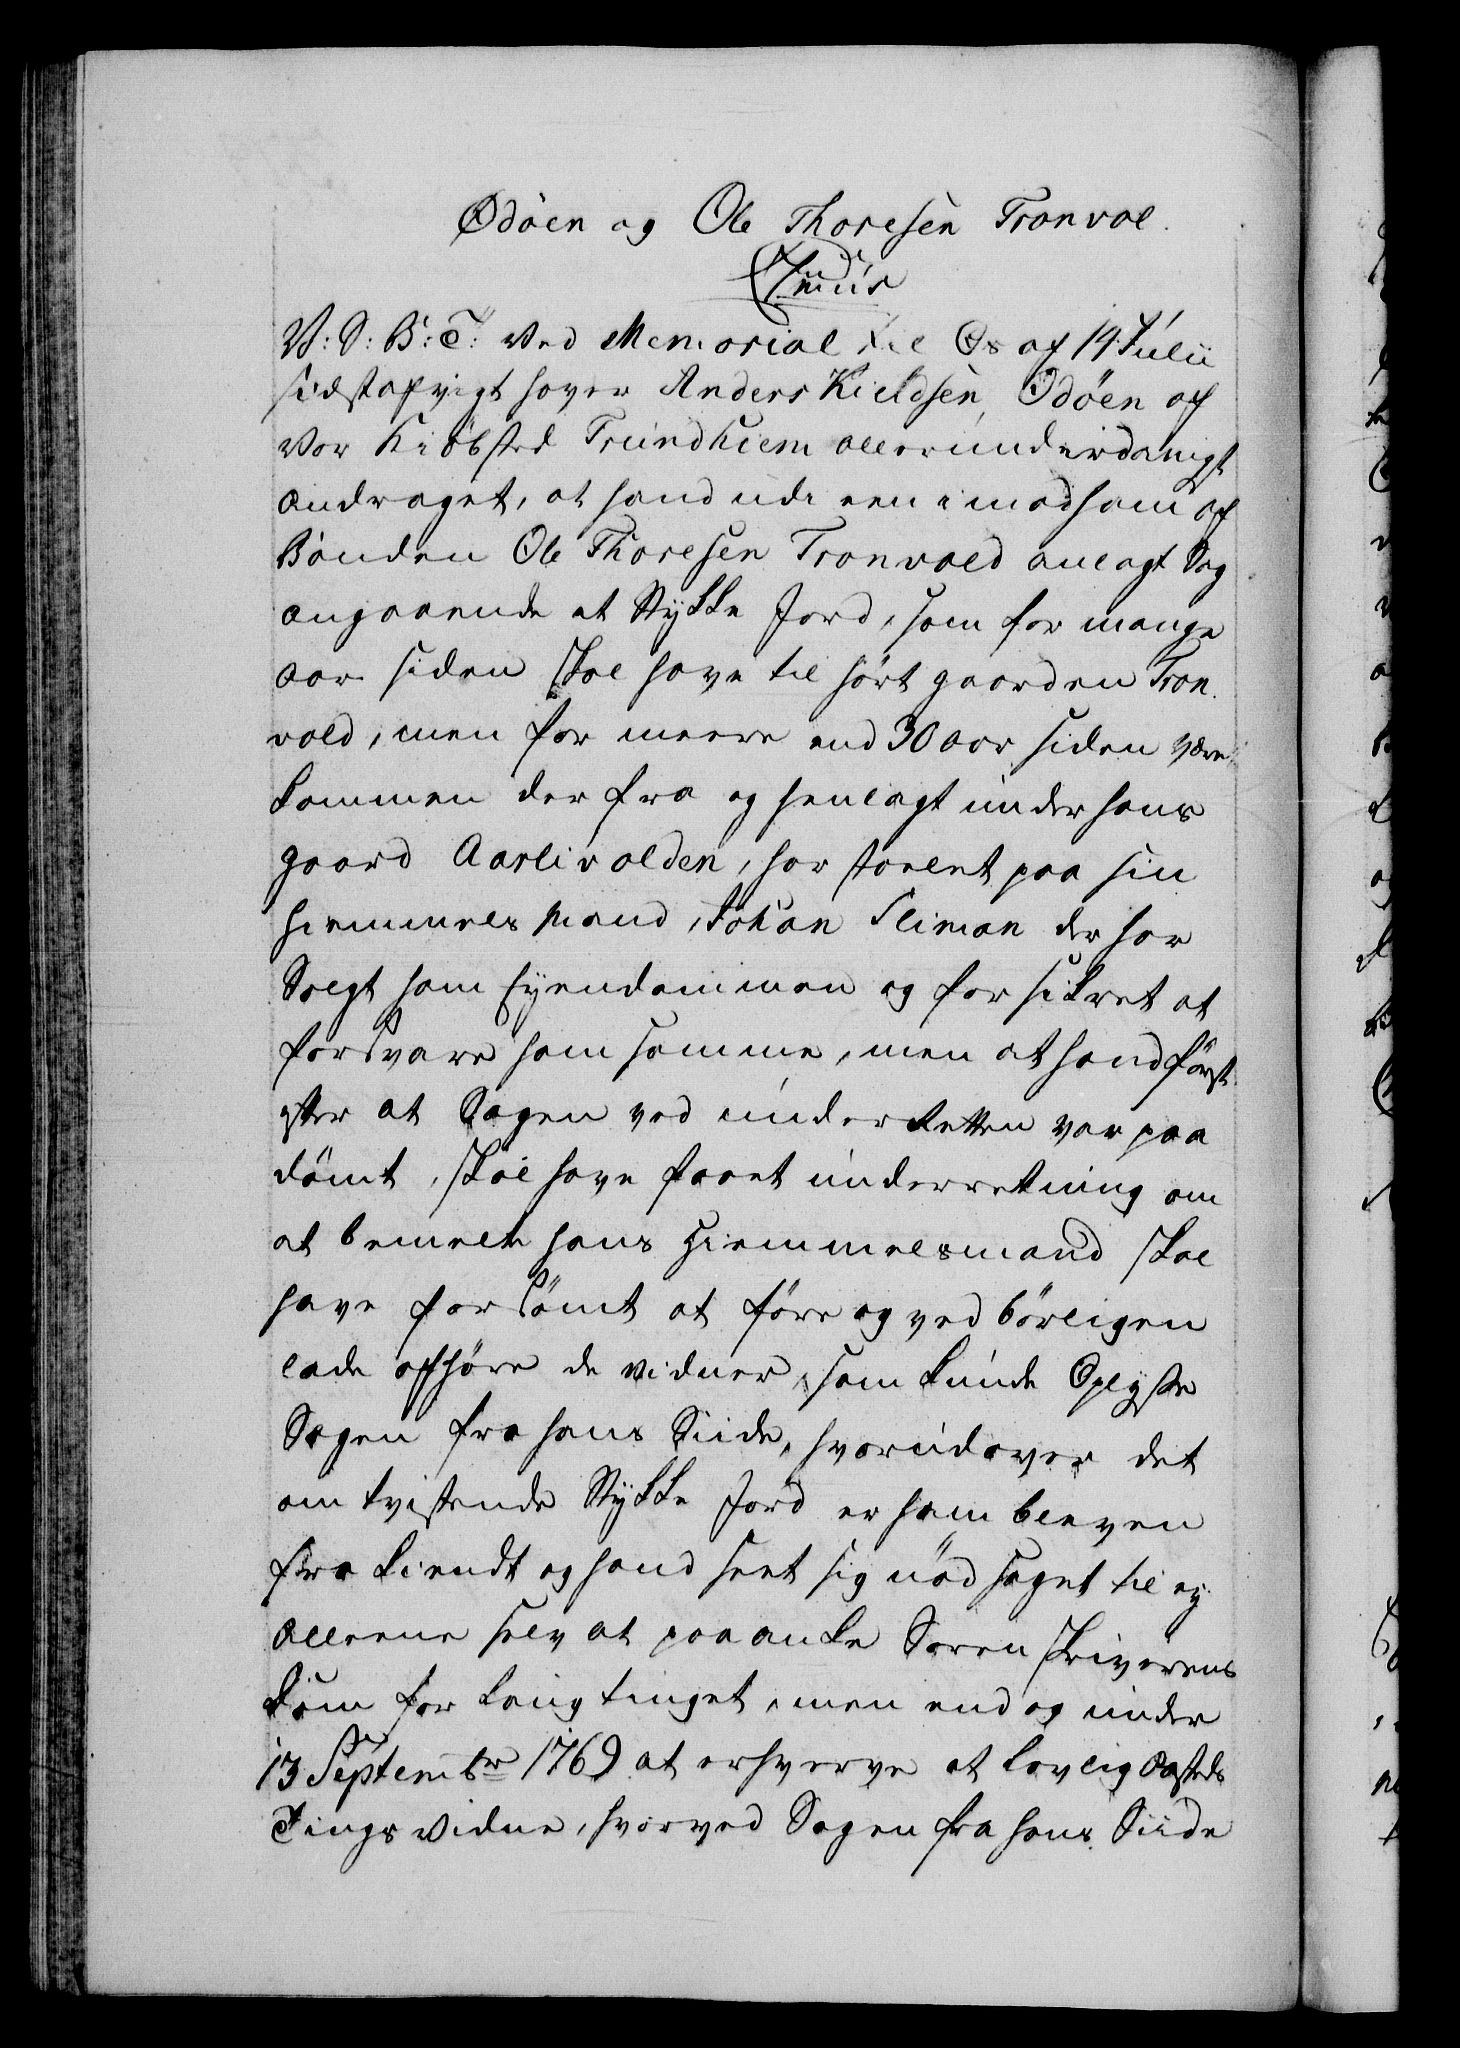 Ødöen og Ole Thoresen Tronvol.
V: S: B: T: Ved Memorial til Os af 14 Julii
sidstafvigt haver Anders Kieldsen Ødöen af
Vor Kiöbsted Trundhiem allerunderdanigst
andraget, at hand udi een imod ham af
Bonden Ole Thoresen Tronvold anlagt Sag
angaaende et Stykke Jord, som for mange
aar siden skal have til hört gaarden Tron
vold, men for meere end 30 aar siden være
kommen der fra og henlagt under hans
gaard Aarlivolden, har stævnt paa sin
hiemmels Mand, Johan Sliman der har
Solgt ham Eyendommen og forsikret at
forsvare ham samme, men at hand först
efter at Sagen ved underRetten var paa
dömt, skal have faaet underretning om
at bemelte hans Hiemmelsmand skal
have forsömt at före og ved börligen
lade afhöre de vidner, som kunde Oplyse
Sagen fra hans Siide, hvorudover det
omtvistende Stykke Jord er ham bleven
fra kiendt og hand seet sig nödsaget til ej
alleene selv at paaanke Sorenskriverens
Dom for Laugtinget, men endog under
13 Septembr 1769 at erhverve et lovlig Aasteds
Tings vidne, hvorved Sagen fra hans Siide